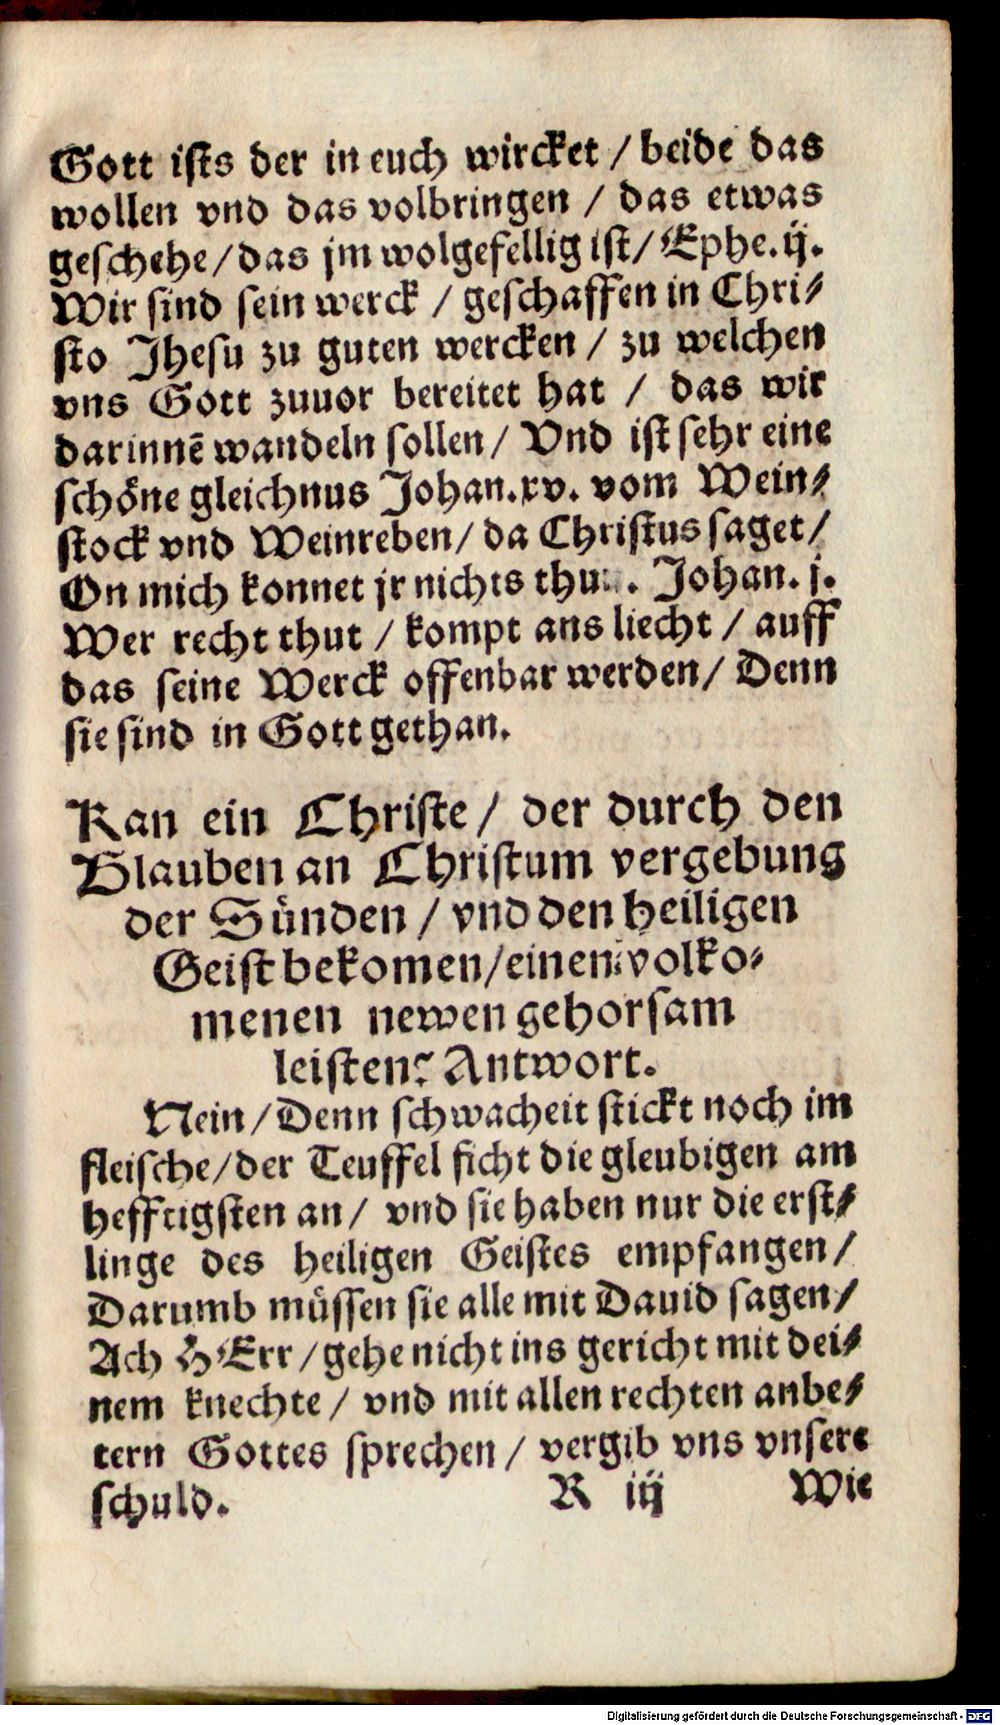 Gott ists der in euch wircket / beide das
wollen vnd das volbringen / das etwas
geschehe / das jm wolgefellig ist / Ephe. ij.
Wir sind sein werck / geschaffen in Chri⸗
sto Jhesu zu guten wercken / zu welchen
vns Gott zuuor bereitet hat / das wir
darinnē wandeln sollen / Vnd ist sehr eine
schöne gleichnus Johan. xv. vom Wein⸗
stock vnd Weinreben / da Christus saget /
On mich konnet jr nichts . Johan. j.
Wer recht thut / kompt ans liecht / auff
das seine Werck offenbar werden / Denn
sie sind in Gott gethan.
Kan ein Christe / der durch den
Glauben an Christum vergebung
der Sünden / vnd den heiligen
Geist bekomen / einen volko⸗
menen newen gehorsam
leisten? Antwort.
Nein / Denn schwacheit stickt noch im
fleische / der Teuffel ficht die gleubigen am
hefftigsten an / vnd sie haben nur die erst⸗
linge des heiligen Geistes empfangen /
Darumb müssen sie alle mit Dauid sagen /
Ach HErr / gehe nicht ins gericht mit dei⸗
nem knechte / vnd mit allen rechten anbe⸗
tern Gottes sprechen / vergib vns vnsere
schuld. R iij Wie
Digitalisierung gefördert durch die Deutsche Forschungsgemeinschaft - DFG